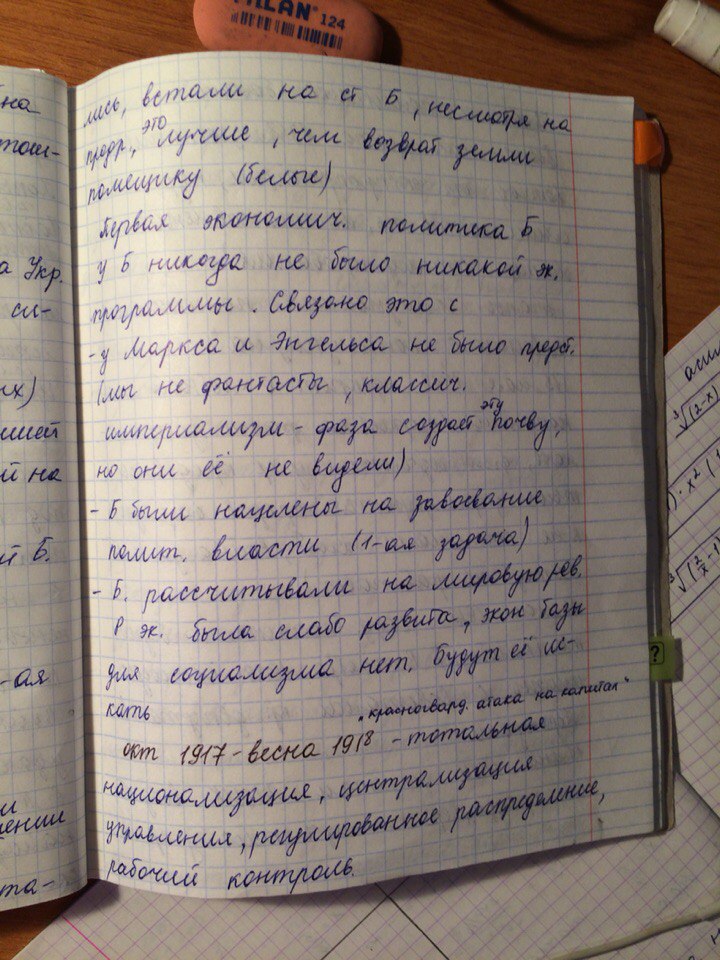 MILAN 124
лись, встали на ст Б, несмотря на
предр, это лучше, чем возврат земли
помещику (белые)
Первая экономич. политика Б
у Б никогда не было никакой эк.
программы. Связано это с
- у Маркса и Энгельса не было предст.
(мы не фантасты, классич.
империализм - фаза создаст эту почву,
но они её не видели)
- Б были нацелены на завоевание
полит. власти (1-ая задача)
- Б. рассчитывали на мировую рев.
Р эк. была слабо развита, экон базы
для социализма нет. Будут её ис-
кать
"красногвард. атака на капитал"
окт 1917 - весна 1918 - тотальная
национализация, централизация
управления, регулированное распределение,
рабочий контроль.
на
а Укр.
си-
их)
й на
й Б.
-ая
и
та-
?
∛(2-x)